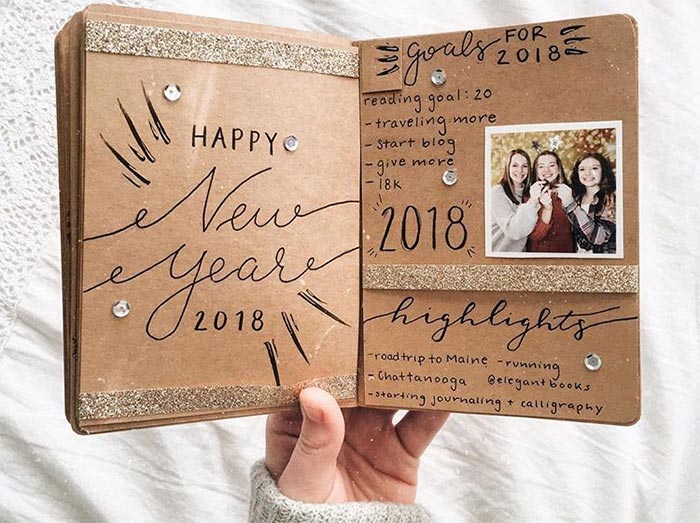 HAPPY
New
Year
2018
goals FOR
2018
reading goal: 20
- traveling more
- start blog
- give more
- 18k
2018
highlights
- roadtrip to Maine - running
- Chattanooga @elegantbooks
- starting journaling + calligraphy